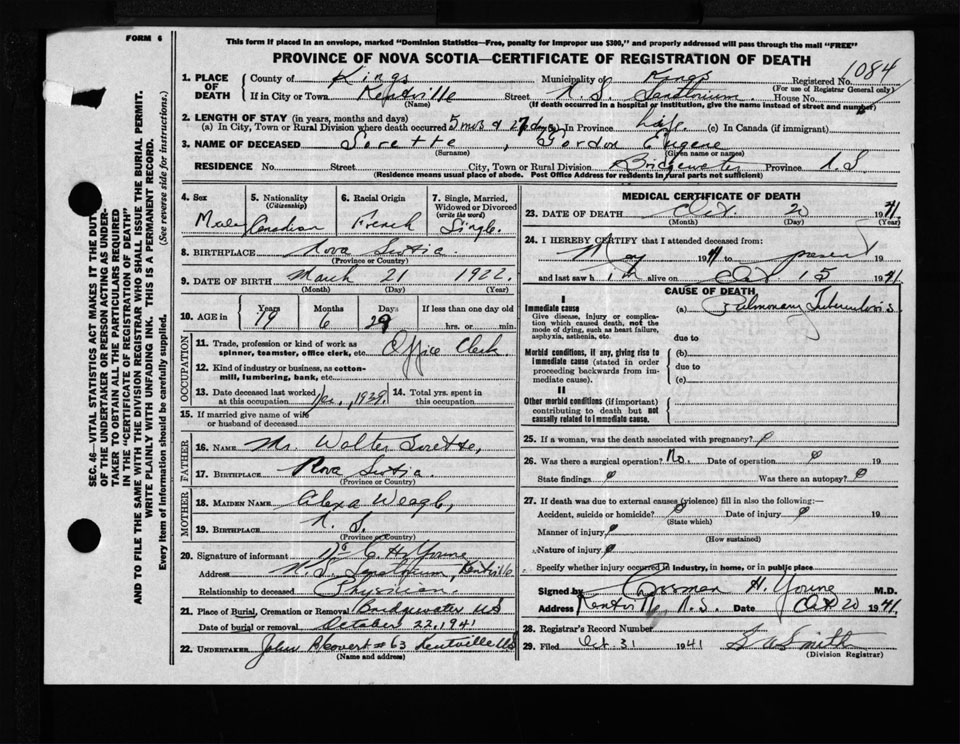 FORM 6
This form if placed in an envelope, marked "Dominion Statistics—Free, penalty for improper use $300," and properly addressed will pass through the mail "FREE"
PROVINCE OF NOVA SCOTIA—CERTIFICATE OF REGISTRATION OF DEATH
1. PLACE OF DEATH County of Kings Municipality of Kings Registered No. 1084
(For use of Registrar General only)
If in City or Town Kentville Street N.S. Sanatorium House No.
(Name) (If death occurred in a hospital or institution, give the name instead of street and number)
2. LENGTH OF STAY (in years, months and days)
(a) In City, Town or Rural Division where death occurred 5 mos & 27 days (b) In Province Life (c) In Canada (if immigrant)
3. NAME OF DECEASED Sorette, Gordon Eugene
(Surname) (Given name or names)
RESIDENCE No. Street City, Town or Rural Division Bridgewater Province N.S.
(Residence means usual place of abode. Post Office Address for residents in rural parts not sufficient)
4. Sex 5. Nationality (Citizenship) 6. Racial Origin 7. Single, Married, Widowed or Divorced (write the word)
Male Canadian French Single
8. BIRTHPLACE Nova Scotia
(Province or Country)
9. DATE OF BIRTH March 21 1922.
(Month) (Day) (Year)
10. AGE in Years Months Days If less than one day old
19 6 29 hrs. or min.
OCCUPATION
11. Trade, profession or kind of work as spinner, teamster, office clerk, etc. Office Clerk
12. Kind of industry or business, as cotton-mill, lumbering, bank, etc.
13. Date deceased last worked at this occupation 1939. 14. Total yrs. spent in this occupation
15. If married give name of wife or husband of deceased
FATHER
16. NAME Mr. Walter Sorette,
17. BIRTHPLACE Nova Scotia
(Province or Country)
MOTHER
18. MAIDEN NAME Alexa Weagle,
19. BIRTHPLACE N.S.
(Province or Country)
20. Signature of informant Dr C. H. Young
Address N.S. Sanatorium, Kentville
Relationship to deceased Physician.
21. Place of Burial, Cremation or Removal Bridgewater NS
Date of burial or removal October 22, 1941
22. UNDERTAKER John #63 Kentville NS
(Name and address)
MEDICAL CERTIFICATE OF DEATH
23. DATE OF DEATH Oct. 20 1941
(Month) (Day) (Year)
24. I HEREBY CERTIFY that I attended deceased from:
May 1941 to present
and last saw him alive on Oct 15 1941.
CAUSE OF DEATH
I
Immediate cause (a) Pulmonary Tuberculosis
Give disease, injury or complication which caused death, not the mode of dying, such as heart failure, asphyxia, asthenia, etc.
due to
Morbid conditions, if any, giving rise to immediate cause (stated in order proceeding backwards from immediate cause).
(b)
due to
(c)
II
Other morbid conditions (if important) contributing to death but not causally related to immediate cause.
25. If a woman, was the death associated with pregnancy?
26. Was there a surgical operation? No. Date of operation 19
State findings Was there an autopsy?
27. If death was due to external causes (violence) fill in also the following:—
Accident, suicide or homicide? Date of injury 19
(State which)
Manner of injury
(How sustained)
Nature of injury
Specify whether injury occurred in industry, in home, or in public place
Signed by H. Young M.D.
Address Kentville, N.S. Date Oct 20 1941.
28. Registrar's Record Number
29. Filed Oct 31 1941 Smith
(Division Registrar)
SEC. 46—VITAL STATISTICS ACT MAKES IT THE DUTY
OF THE UNDERTAKER OR PERSON ACTING AS UNDER-
TAKER TO OBTAIN ALL THE PARTICULARS REQUIRED
IN THE "CERTIFICATE OF REGISTRATION OF DEATH"
AND TO FILE THE SAME WITH THE DIVISION REGISTRAR WHO SHALL ISSUE THE BURIAL PERMIT.
WRITE PLAINLY WITH UNFADING INK. THIS IS A PERMANENT RECORD.
Every item of information should be carefully supplied. (See reverse side for instructions.)